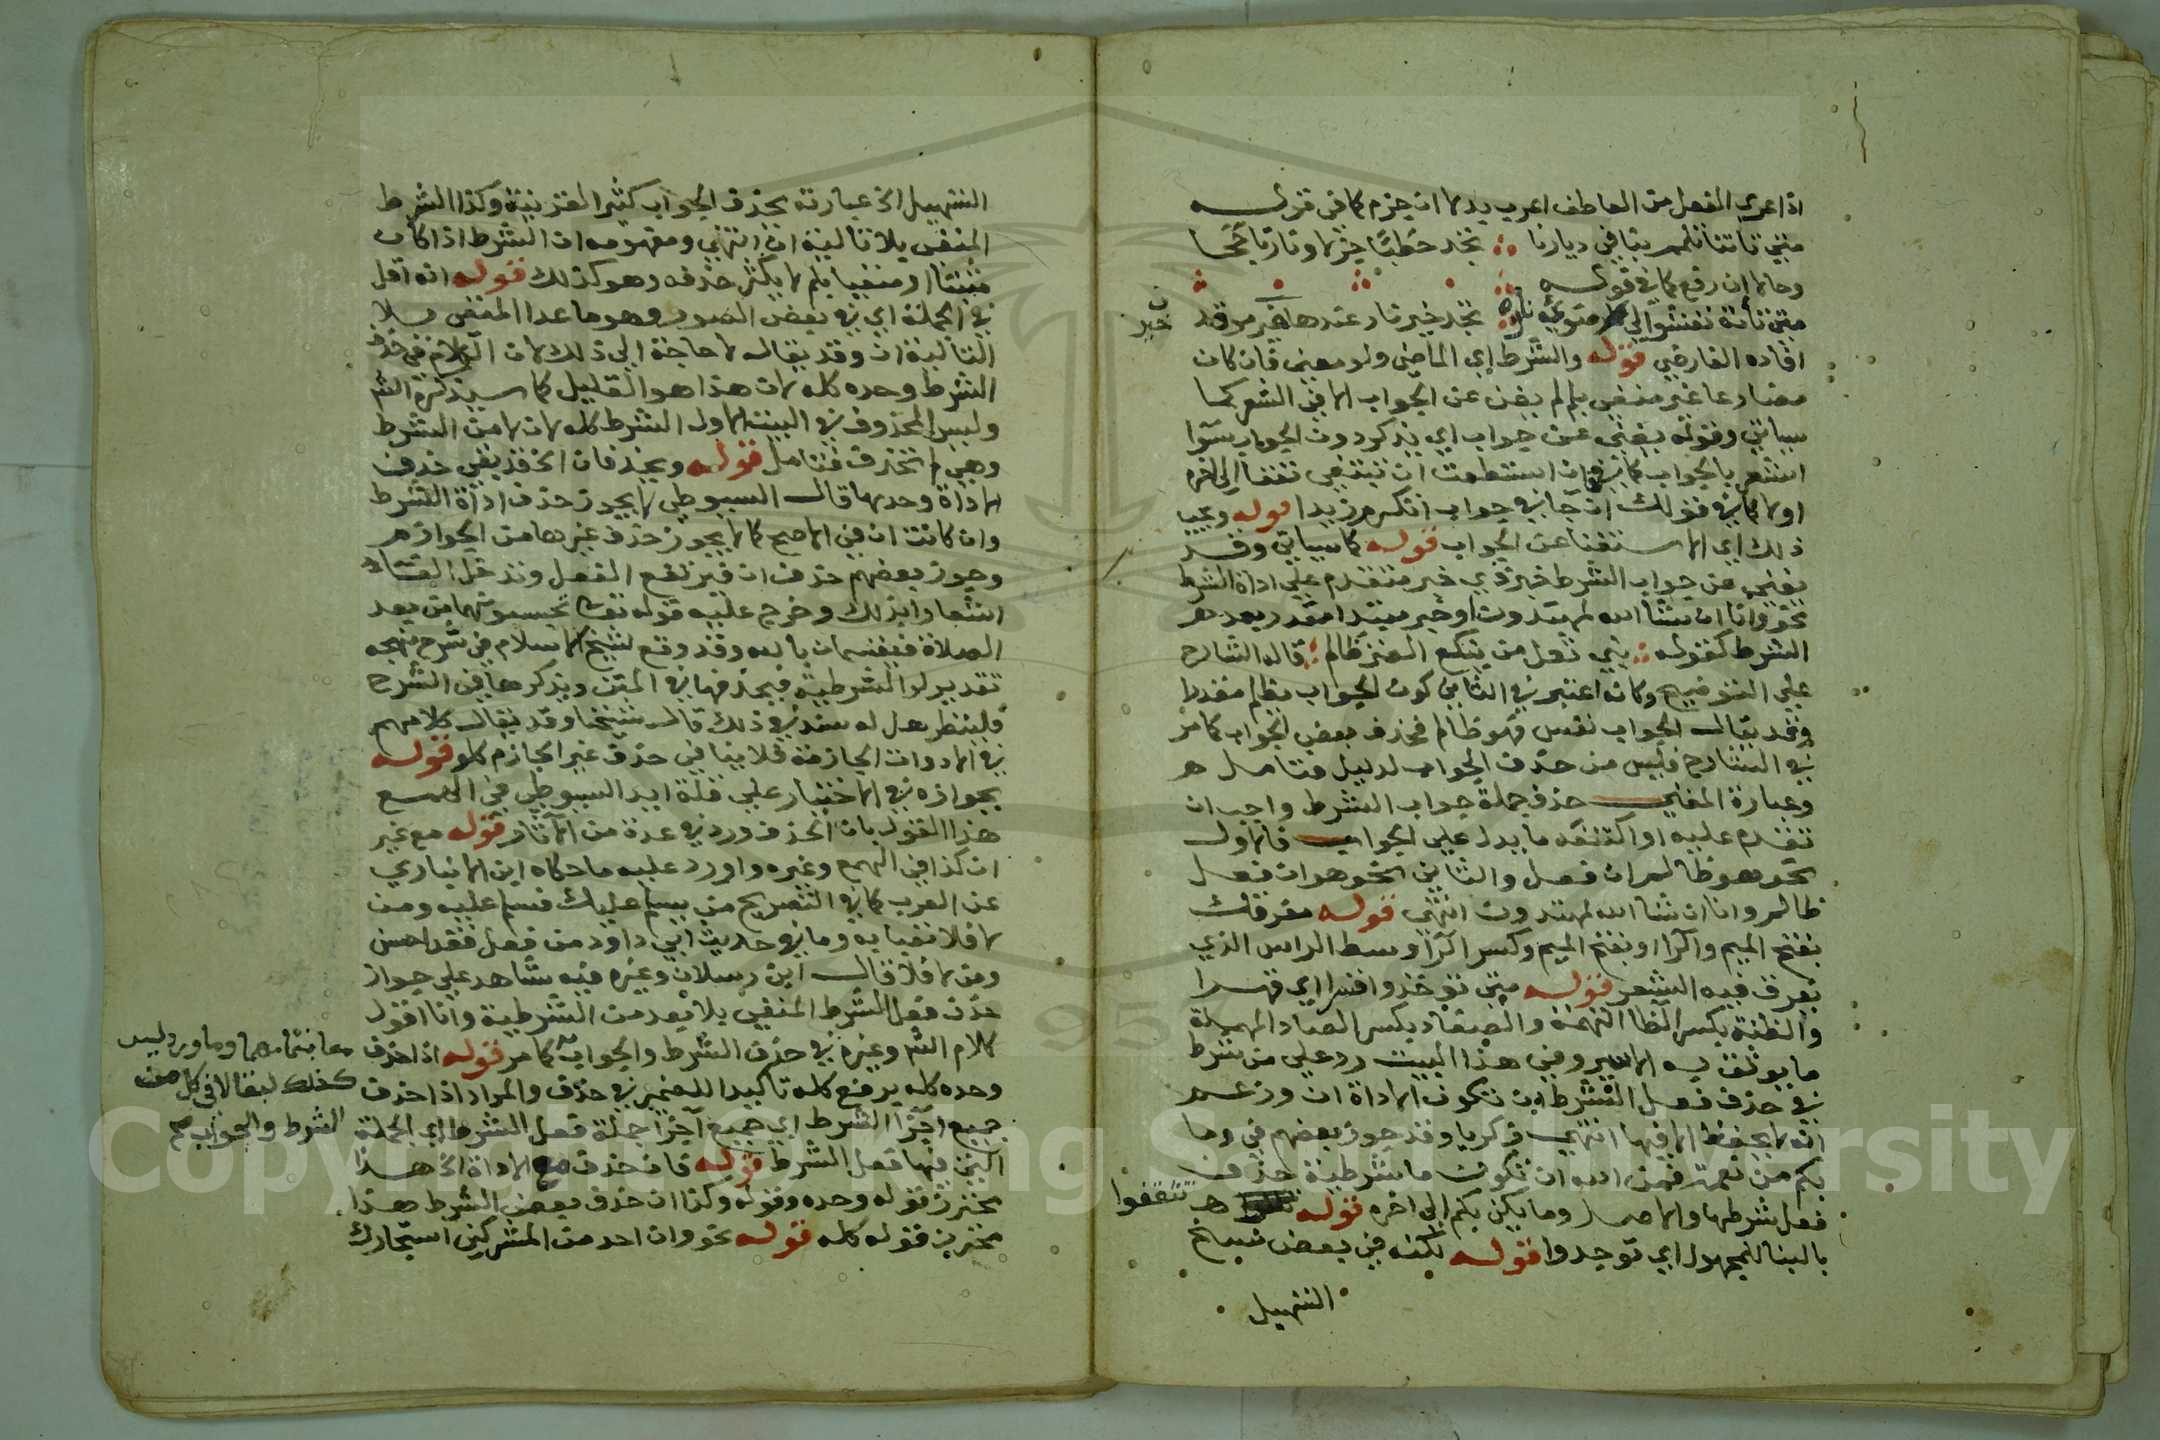 اذا عري الفعل من العاطف اعرب بدلا ان جزم كما في قوله
متى تاتنا تلمم بنا في ديارنا تجد حطبا جزلا ونارا تاججا
وحالا ان رفع كما في قوله
متى تأته تعشو الى ضوء ناره تجد خير نار عندها خير موقد
خير
افاده الفارضي قوله والشرط اي الماضي ولو معنى فان كان
مضارعا غير منفي بلم لم يغن عن الجواب الا في الشعر كما
سياتي وقوله يغني عن جواب اي يذكر دون الجواب سوا
اشعر بالجواب كما في فان استطعت ان تبتغي نفقا الى اخره
اولا كما في قولك ان جا في جواب اتكرم زيدا قوله ويجب
ذلك اي الاستغنا عن الجواب قوله كما سياتي وقد
يغني عن جواب الشرط خبر ذي خبر متقدم على اداة الشرط
نحو وانا ان شا الله لمهتدون او خبر مبتدا مقدر بعد هر
الشرط كقوله بني ثعل من ينكع العنز ظالم قاله الشارح
على التوضيح وكانه اعتبر في الثاني كون الجواب بظلم مقدرا
وقد يقال الجواب نفس فهو ظالم فحذف بعض الجواب كما مر
في الشارح فليس من حذف الجواب لدليل فتامل هر
وعبارة المغني حذف جملة جواب الشرط واجب ان
تقدم عليه او اكتنفه ما يدل على الجواب فالاول
نحو هو ظالم ان فعل والثاني نحو هو ان فعل
ظالم وانا ان شا الله لمهتدون انتهى قوله مفرقك
بفتح الميم والرا او بفتح الميم وكسر الرا وسط الراس الذي
يفرق فيه الشعر قوله متى توخذوا قسرا اي قهرا
والظنة بكسر الظا التهمة والصفاد بكسر الصاد المهملة
ما يوثق به الاسير وفي هذا البيت رد على من شرط
في حذف فعل الشرط ان تكون الاداة ان وزعم
انه لا يحفظ الا فيها انتهى زكريا وقد جوز بعضهم في وما
بكم من نعمة فمن الله ان تكون ما شرطية حذف
فعل شرطها والاصل وما يكن بكم الى اخره قوله تثقفوا هر
بالبنا للمجهول اي توجدوا قوله لكنه في بعض نسخ
التسهيل
التسهيل الخ عبارته يحذف الجواب كثيرا لقرينة وكذا الشرط
المنفي بلا تالية ان انتهى ومفهومه ان الشرط اذا كان
مثبتا او منفيا بلم لا يكثر حذفه وهو كذلك قوله انه اقل
في الجملة اي في بعض الصور وهو ما عدا المنفي بلا
التالية ان وقد يقال لا حاجة الى ذلك لان الكلام في حذف
الشرط وحده كله لان هذا هو القليل كما سيذكره الشم
وليس المحذوف في البيت الاول الشرط كله لان لا من الشرط
وهي لم تحذف فتامل قوله ويحذفان الخ قد بقي حذف
الاداة وحدها قال السيوطي لا يجوز حذف اداة الشرط
وان كانت ان في الاصح كما لا يجوز حذف غيرها من الجوازم
وجوز بعضهم حذف ان فيرتفع الفعل وتدخل الفا
اشعارا بذلك وخرج عليه قوله تعالى تحبسونهما من بعد
الصلاة فيقسمان بالله وقد وقع لشيخ الاسلام في شرح منهجه
تقدير لو الشرطية فيحذفها في المتن ويذكرها في الشرح
فلينظر هل له سند في ذلك قال شيخنا وقد يقال كلامهم
في الادوات الجازمة فلا ينافي حذف غير الجازم كلو قوله
بجوازه في الاختيار على قلة ايد السيوطي في الهمع
هذا القول بان الحذف ورد في عدة من الاثار قوله مع غير
ان كذا في الهمع وغيره واورد عليه ما حكاه ابن الانباري
عن العرب كما في التصريح من يسلم عليك فسلم عليه ومن
لا فلا تعبا به وما في حديث ابي داود من فعل فقد احسن
ومن لا فلا قال ابن رسلان وغيره فيه شاهد على جواز
حذف فعل الشرط المنفي بلا بعد من الشرطية وانا اقول
كلام الشم وغيره في حذف الشرط والجواب كما مر قوله اذا حذف
معا بتمامهما وما ورد ليس
كذلك لبقا لا في كل من
الشرط والجواب صح
وحده كله يرفع كله تاكيدا للضمير في حذف والمراد اذا حذف
جميع اجزا الشرط اي جميع اجزا جملة فعل الشرط اي الجملة
التي فيها فعل الشرط قوله فان حذف مع الاداة الخ هذا
محترز قوله وحده وقوله وكذا ان حذف بعض الشرط هذا
محترز قوله كله قوله نحو وان احد من المشركين استجارك
Copyright © King Saud University